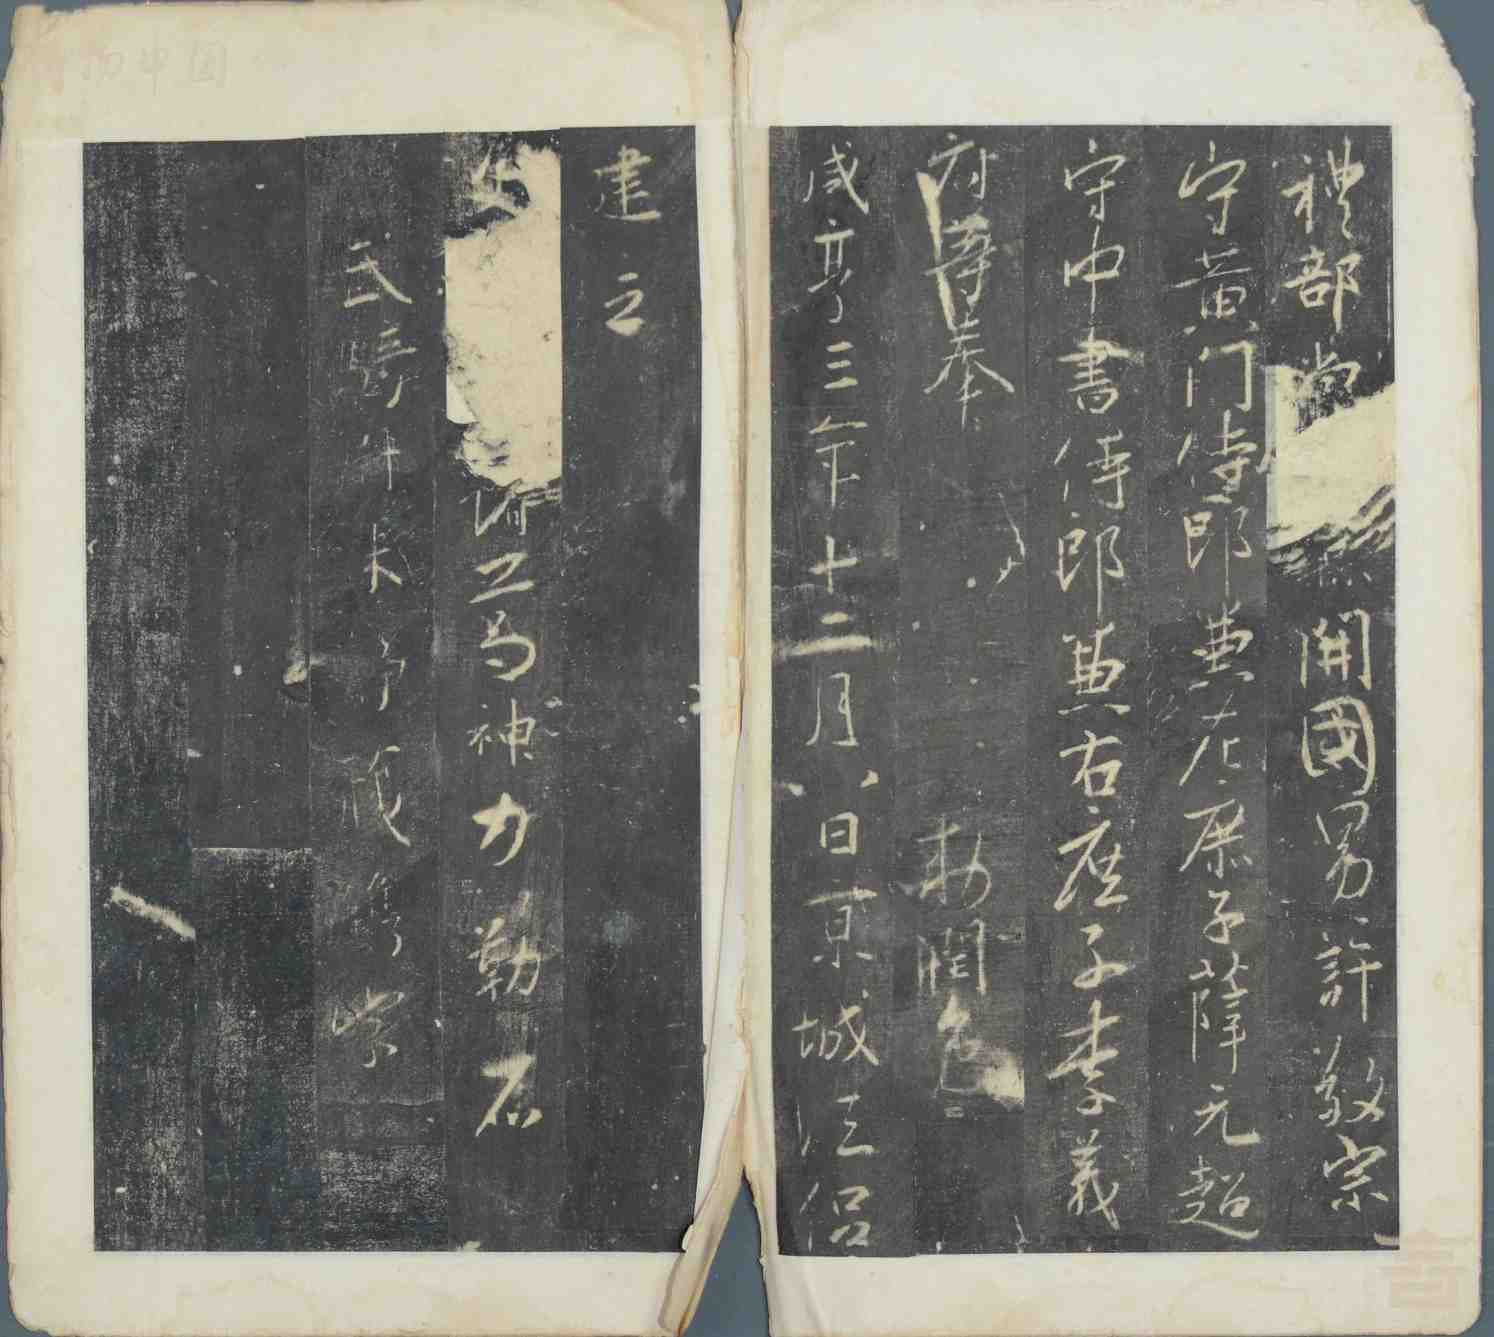 禮部尚 開國男許敬宗
守黃門侍郎兼左庶子薛元超
守中書侍郎兼右庶子李義
府等奉 勅潤色
咸亨三年十二月八日京城法侶
建立
文 諸葛神力勒石
武騎尉朱静藏鐫字